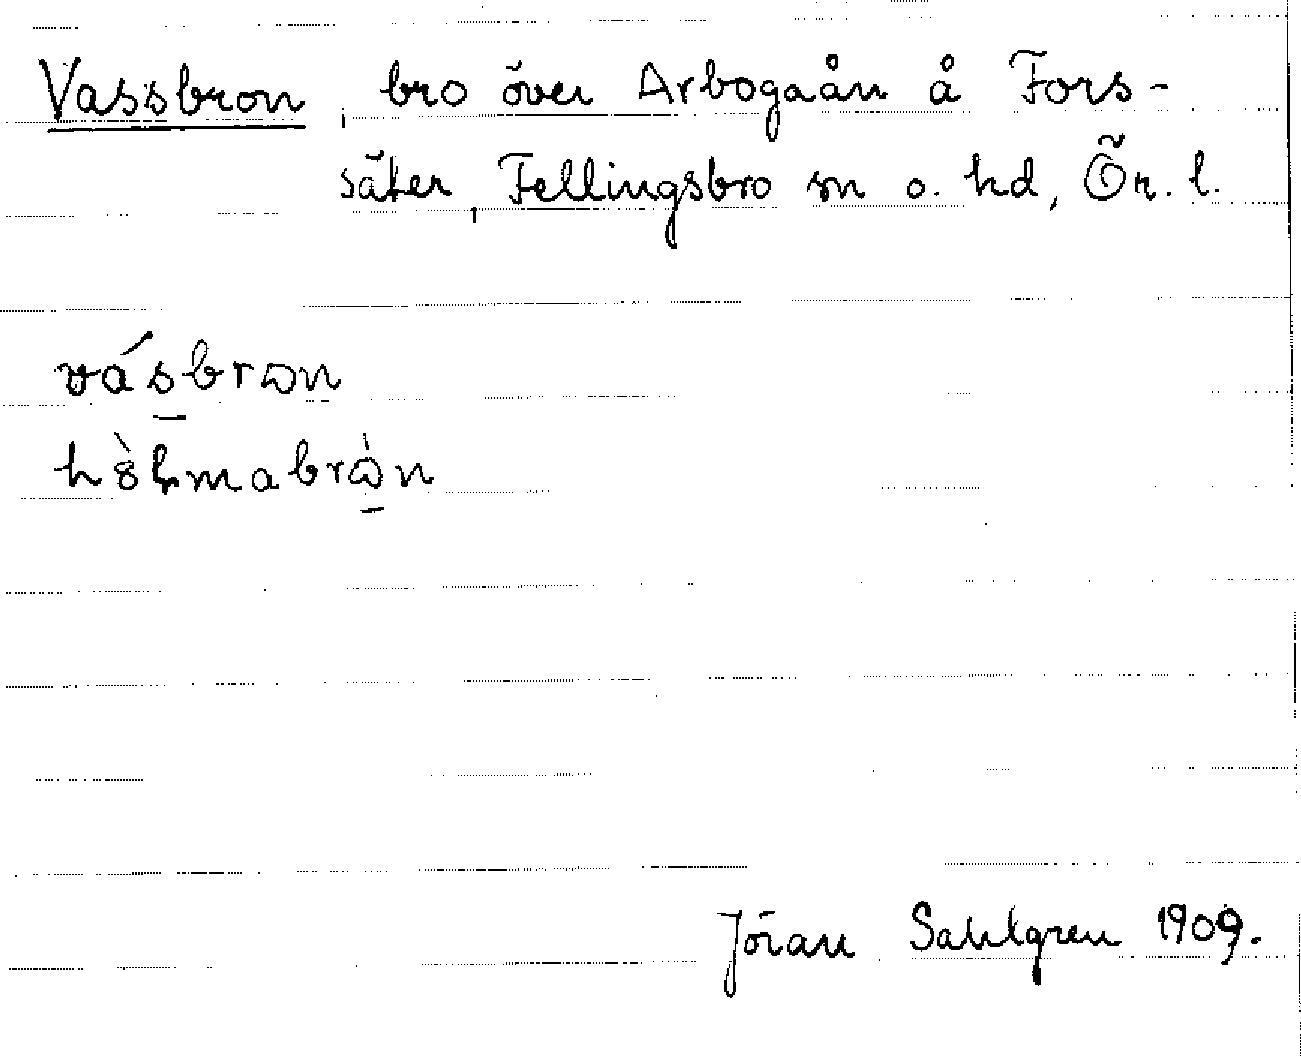 Vassbron, bro över Arbogaån å Fors-
säker, Fellingsbro sn o. hd, Ör. l.
vásbrɷn
hȣ̀ɫmabrɷ̀n
Jöran Sahlgren 1909.